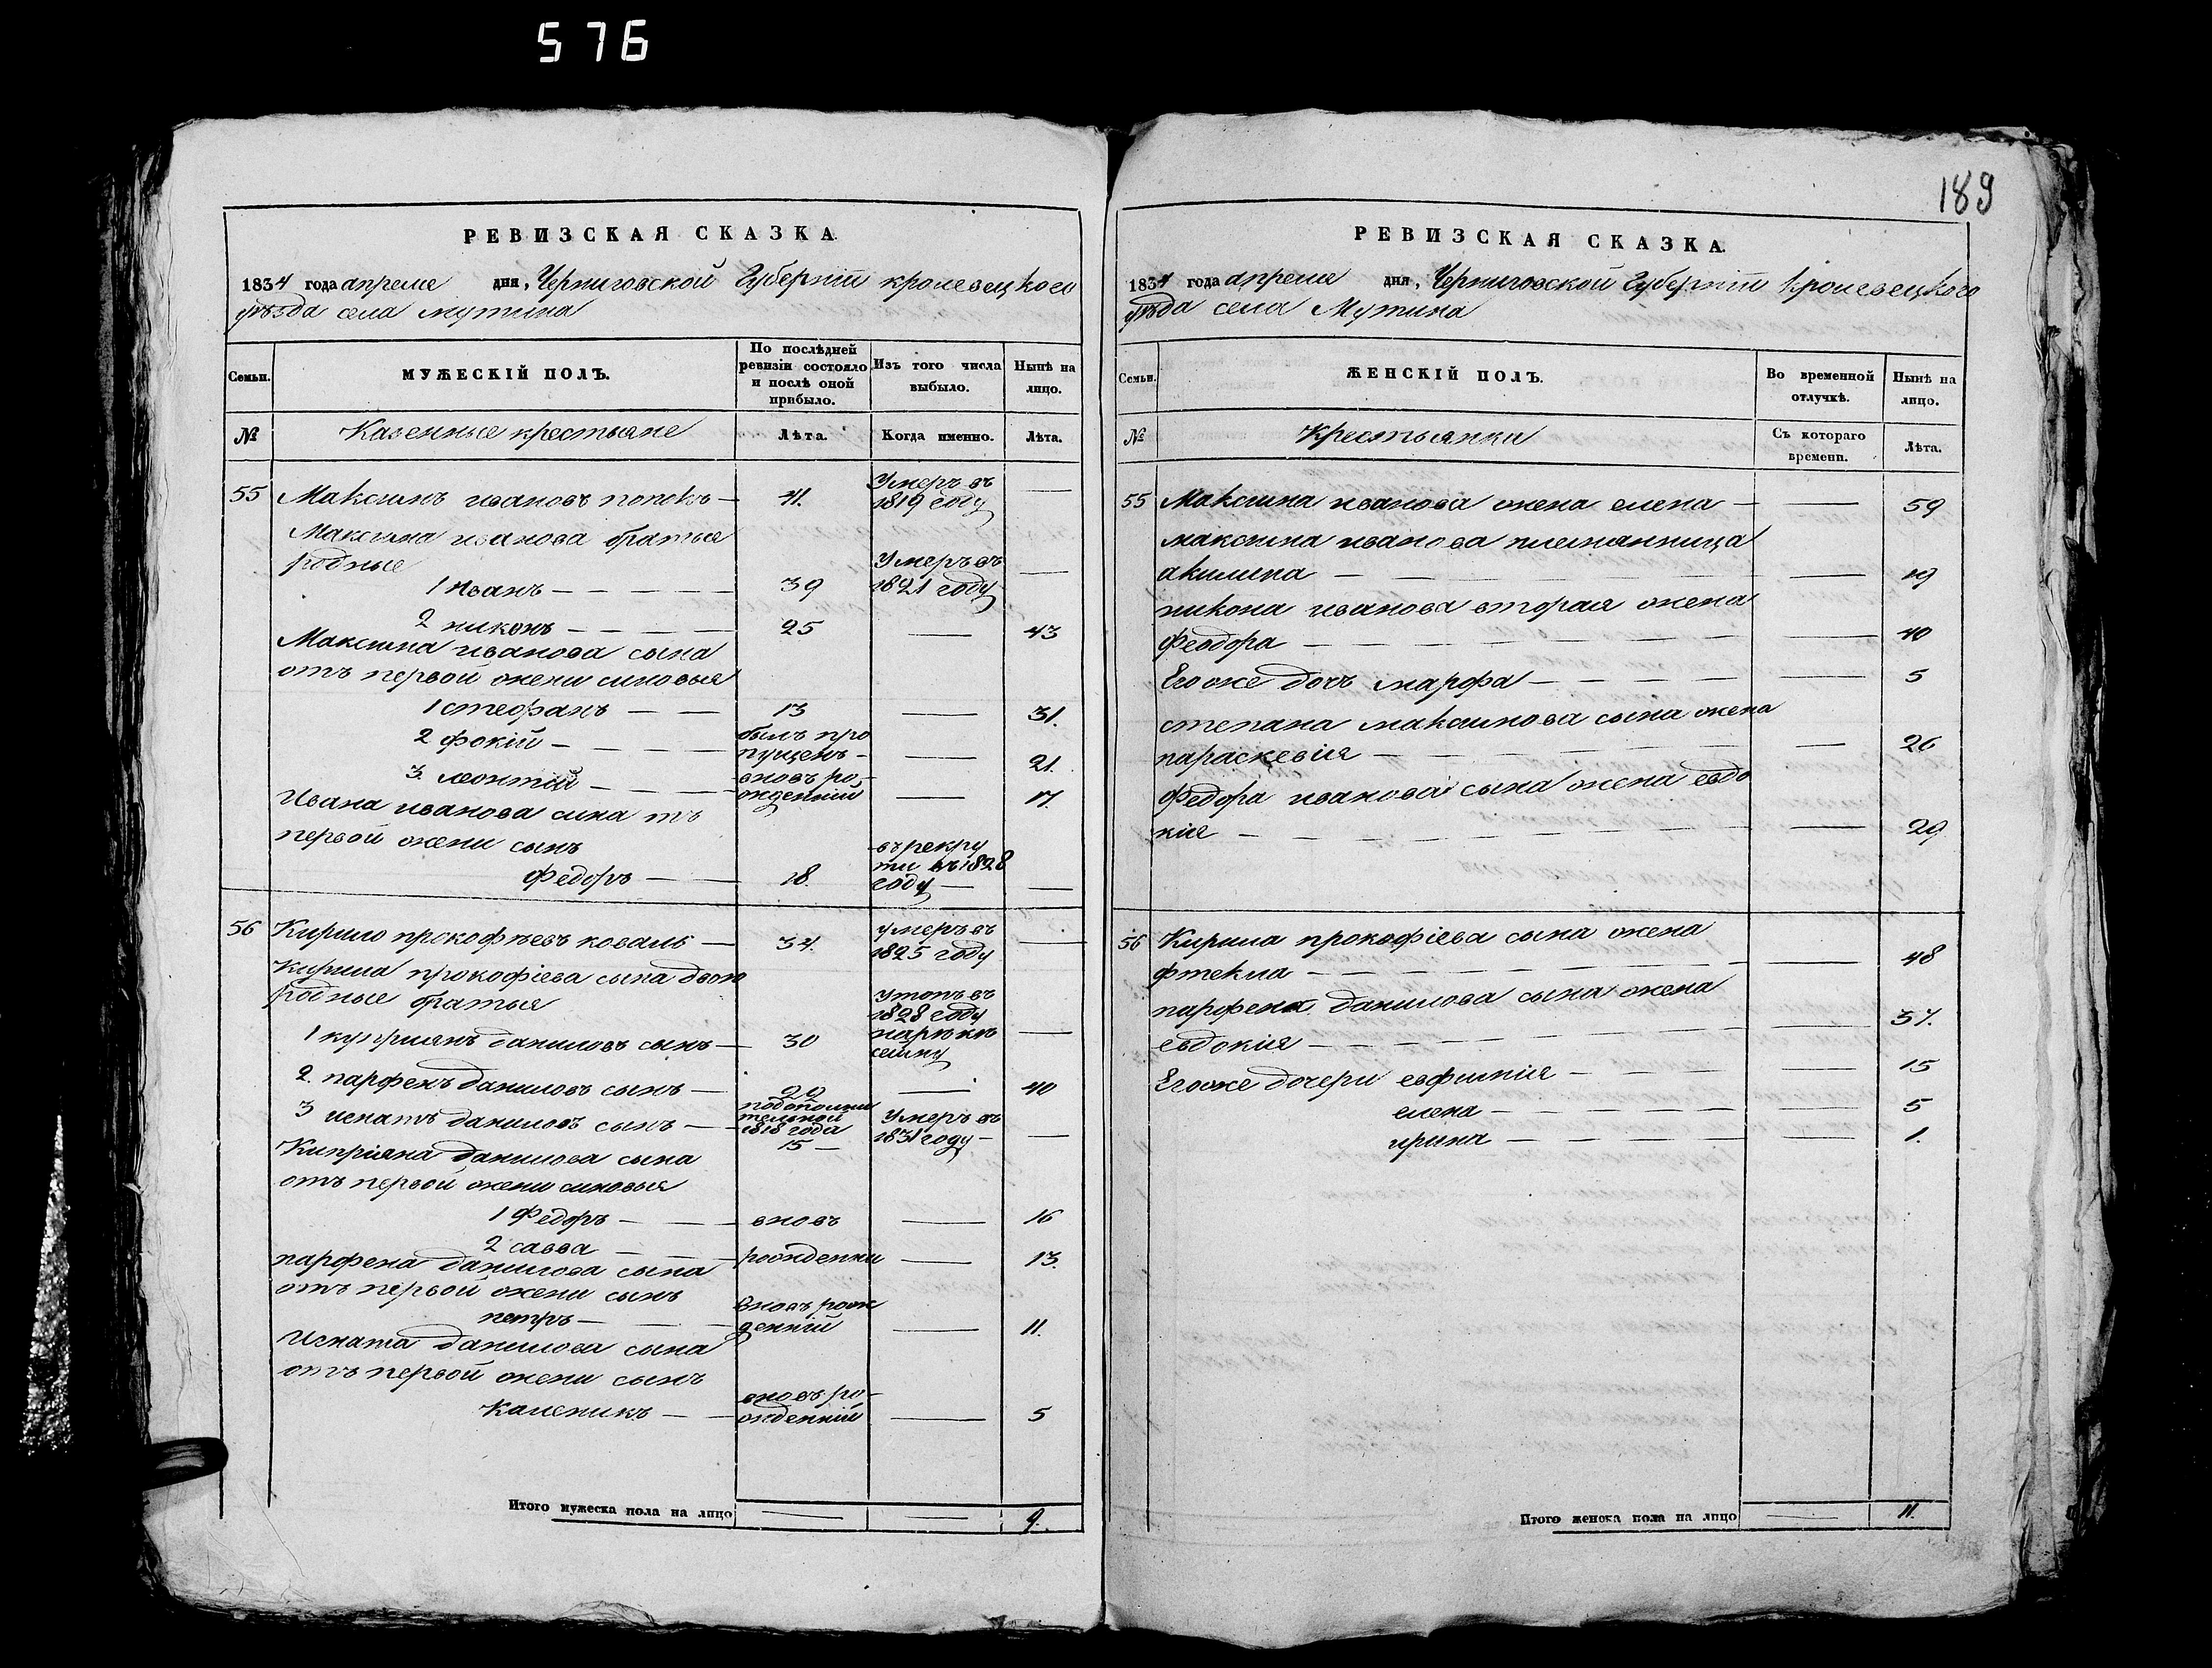 576
189
РЕВИЗСКАЯ СКАЗКА.
1834 года апреля дня, Черниговской Губерніи кролевецкого
уѣзда села мутина
Семьи.
МУЖЕСКІЙ ПОЛЪ.
По послѣдней ревизіи состояло и послѣ оной прибыло.
Изъ того числа выбыло.
Нынѣ на лицо.
№
Казенные крестьяне
Лѣта.
Когда именно.
Лѣта.
55 Максимъ ивановъ попокъ — 41. Умеръ въ 1819 году —
Максима иванова братья
родные
1 иванъ — 39 Умеръ въ 1821 году —
2 никонъ — 25 — 43
Максима иванова сына
отъ первой жени синовья
1 стефанъ — 13 — 31.
2 фокій — былъ пропущенъ — — 21.
3. леонтий — вновь рожденній — 17.
Ивана иванова сина отъ
первой жени сынъ
Федоръ — 18. въ рекрути въ 1828 году — —
56 Кирило прокофѣевъ коваль — 34. умеръ въ 1825 году —
Кирила прокофіева сына двою
родные братья
1 куприянъ даниловъ сынъ — 30 утопъ въ 1828 году на рѣкѣ сейму —
2. парфенъ даниловъ сынъ — 22 — 40
3 игнатъ даниловъ сынъ — по дополнительной 1818 года 15 — Умеръ въ 1831 году — —
Кипріяна данилова сына
отъ первой жени синовья
1 Федоръ — вновь — 16
2 савва — рожденни — 13.
парфена данилова сына
отъ первой жени сынъ
петръ — вновь рожденній — 11.
Игната данилова сына
отъ первой жени сынъ
Каленикъ — вновь рожденній — 5
Итого мужеска пола на лицо — — 9.
РЕВИЗСКАЯ СКАЗКА.
1834 года апреля дня, Черниговской Губерніи Кролевецкого
уѣзда села Мутина
Семьи.
ЖЕНСКІЙ ПОЛЪ.
Во временной отлучкѣ.
Нынѣ на лицо.
№
Крестьянки
Съ котораго времени.
Лѣта.
55 Максима иванова жена елена — — 59
максима иванова племянница
акилина — — 19
никона иванова вторая жена
Феодора — — 40
Его же дочь марфа — — 5
степана максимова сына жена
параскевія — — 26
Федора иванова сына жена евдо
кія — — 29
56 Кирила прокофіева сына жена
фтекла — — 48
парфена данилова сына жена
евдокия — — 37.
Его же дочери евфимія — — 15
елена — — 5
ирина — — 1.
Итого женска пола на лицо — 11.